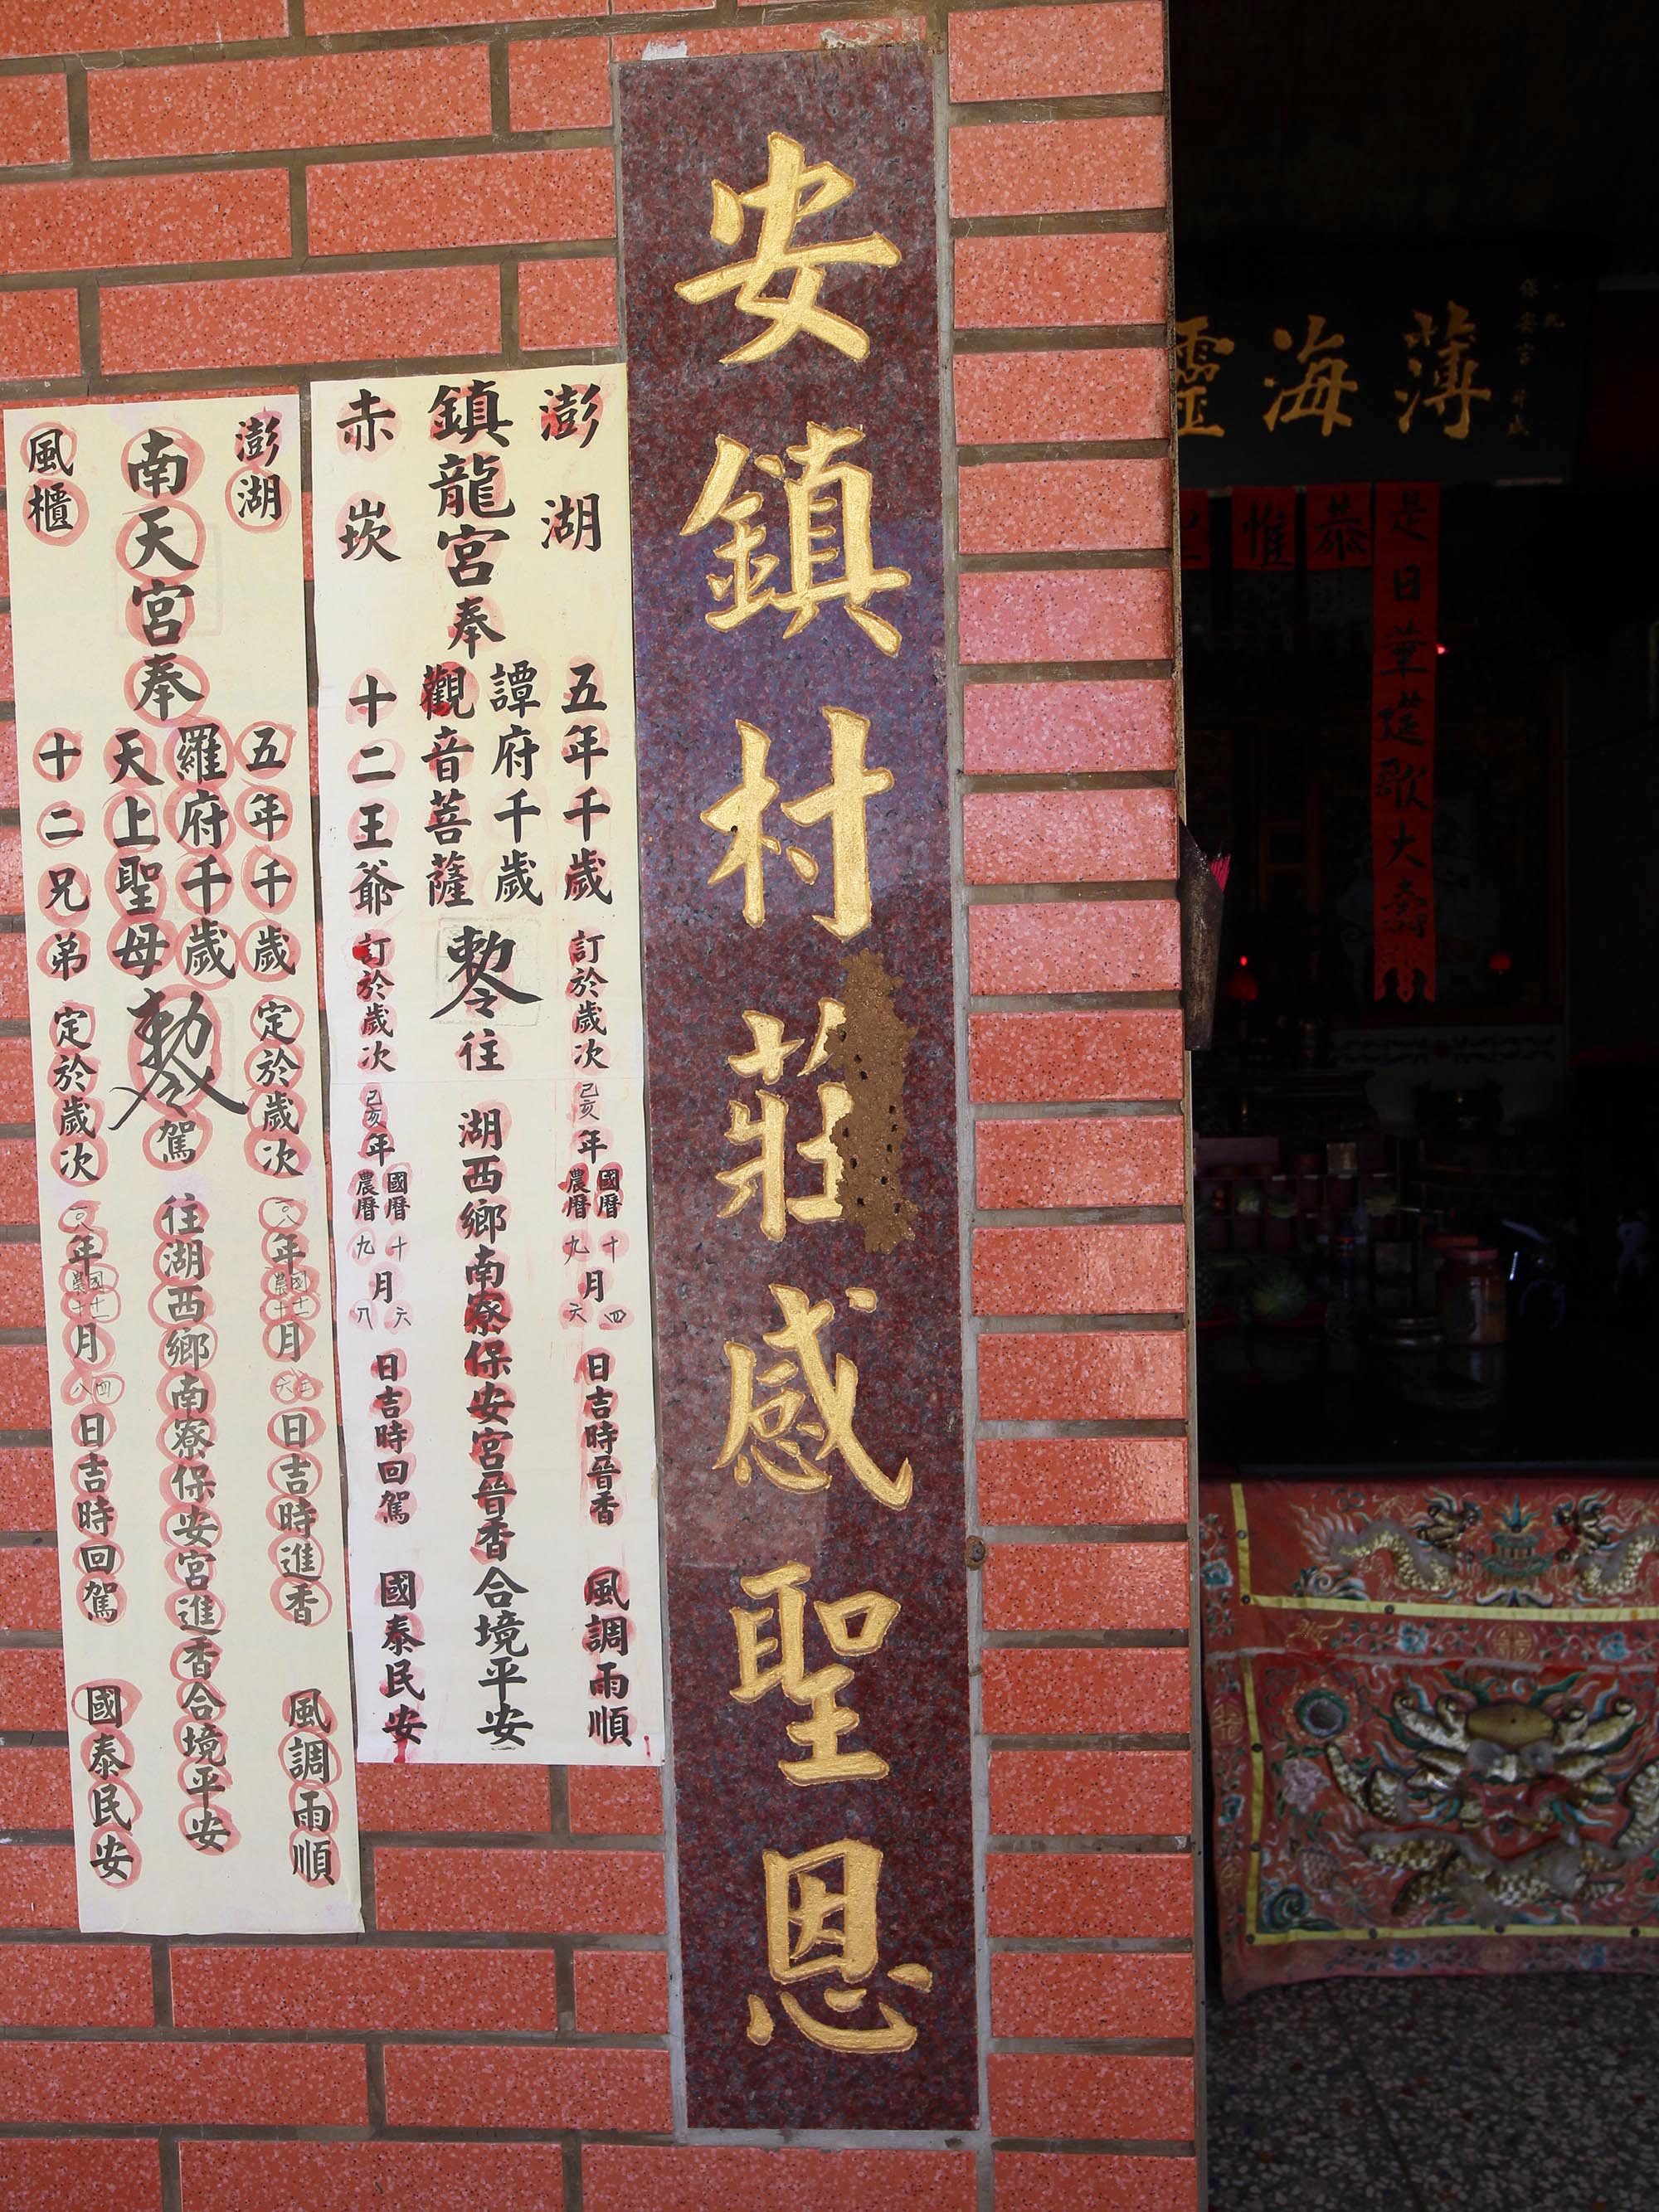 薄海靈
恭
惟
是日華筵歌大壽
安鎮村莊感聖恩
澎湖
鎮龍宮奉
赤崁
五年千歲
譚府千歲
觀音菩薩
十二王爺
敕令
往
湖西鄉南寮保安宮晉香
合境平安
訂於歲次己亥年國曆農曆十九月四六日吉時晉香
風調雨順
訂於歲次己亥年國曆農曆十九月六八日吉時回駕
國泰民安
澎湖
南天宮奉
風櫃
五年千歲
羅府千歲
天上聖母
十二兄弟
敕令
駕
往湖西鄉南寮保安宮進香合境平安
定於歲次一○八年國農十一十月三六日吉時進香
風調雨順
定於歲次一○八年國農十一十月四八日吉時回駕
國泰民安